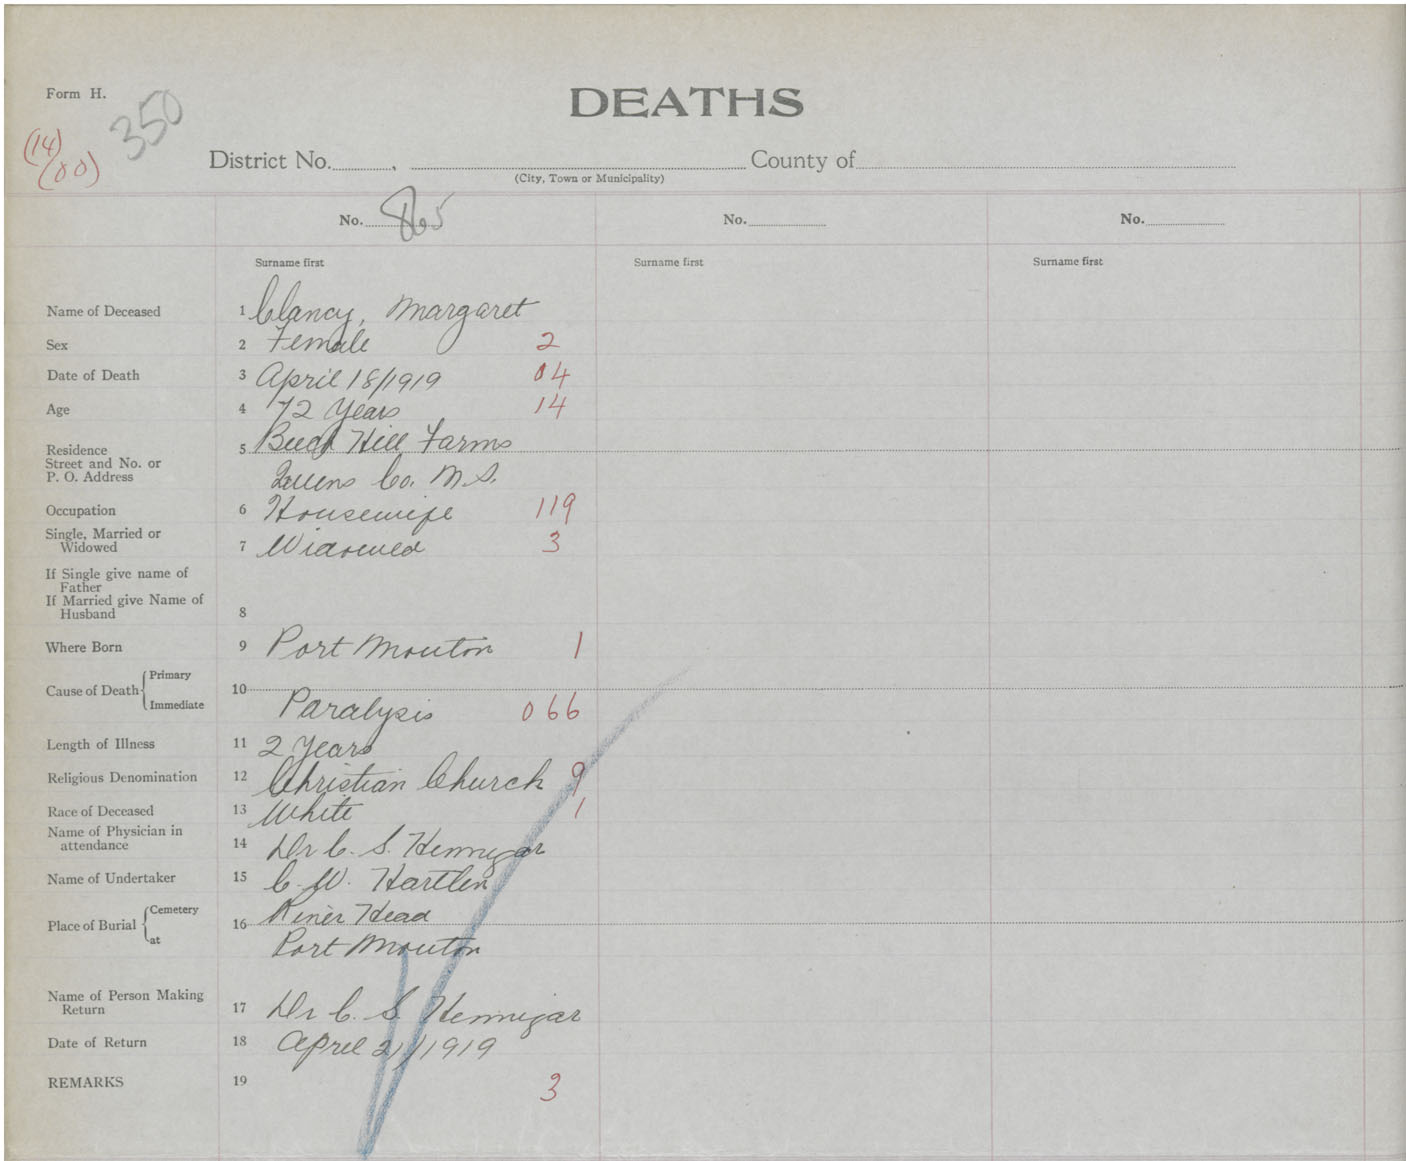 Form H.
350
DEATHS
(14)
(00)
District No. , County of
(City, Town or Municipality)
No. 865 No. No.
Surname first Surname first Surname first
Name of Deceased 1 Clancy, Margaret
Sex 2 Female 2
Date of Death 3 April 18/1919 04
Age 4 72 Years 14
Residence 5 Beech Hill Farms
Street and No. or
P. O. Address Queens Co. N.S.
Occupation 6 Housewife 119
Single, Married or
Widowed 7 Widowed 3
If Single give name of
Father
If Married give Name of
Husband 8
Where Born 9 Port Mouton 1
Cause of Death Primary
10
Immediate Paralysis 066
Length of Illness 11 2 Years
Religious Denomination 12 Christian Church 9
Race of Deceased 13 White 1
Name of Physician in
attendance 14 Dr C. S. Hennigar
Name of Undertaker 15 C. W. Hartlen
Place of Burial Cemetery 16 River Head
at Port Mouton
Name of Person Making
Return 17 Dr C. S. Hennigar
Date of Return 18 April 21/1919
REMARKS 19 3